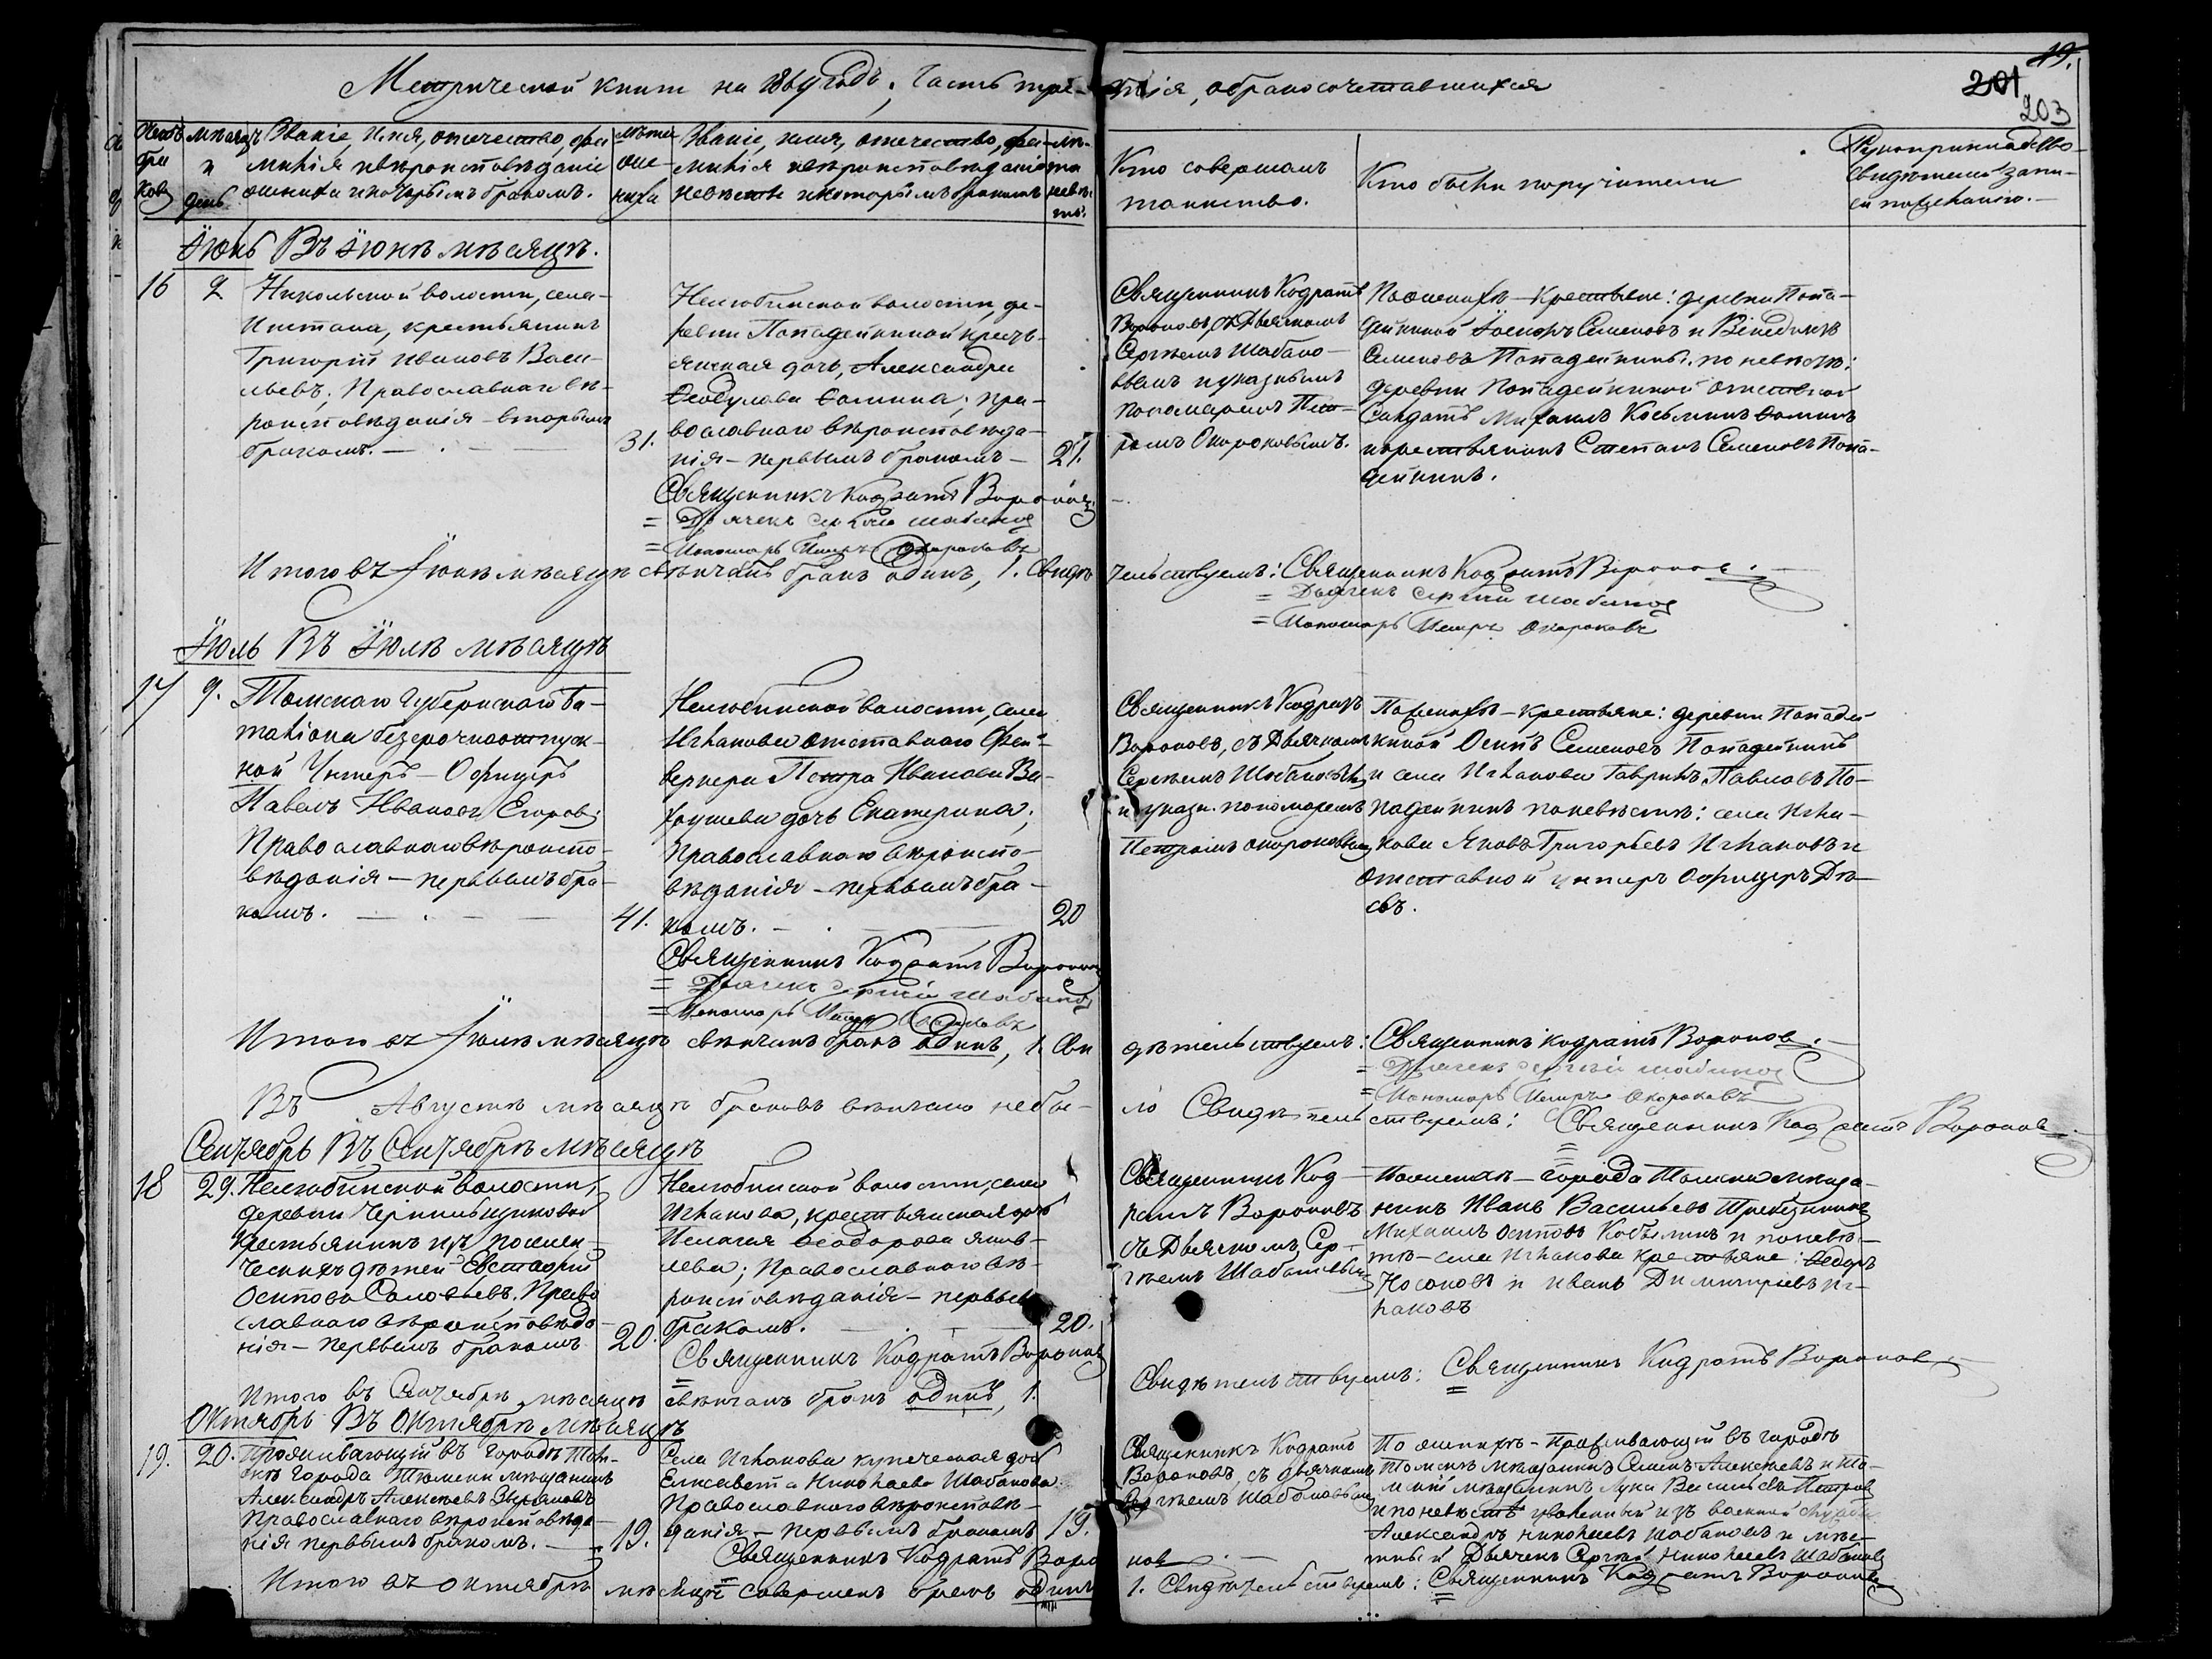 Метрической книги на 1864 годъ, Часть третія, о бракосочетавшихся
19.
201
203
Мѣсяцъ и день
Званіе, Имя, отечество, фамилія и вѣроисповѣданіе жениха и которымъ бракомъ.
Лѣта жениха
Званіе, имя, отечество, фамилія и вѣроисповѣданіе невѣсты и которымъ бракомъ
Лѣта невѣсты.
Кто совершалъ таинство.
Кто были поручители
Рукоприкладство свидѣтелей записи по желанію.
Іюнь Въ Іюнѣ мѣсяцѣ.
16
2
Никольской волости, села
крестьянинъ
Григорій Ивановъ Васи-
льевъ, Православнаго вѣ-
роисповѣданія – вторымъ
бракомъ.
31.
Нелюбинской волости, де-
ревни Попадейкиной кресть-
янская дочь, Александра
Ѳомина; пра-
вославнаго вѣроисповѣда-
нія – первымъ бракомъ –
21.
Священникъ Кодратъ
Вороновъ, съ Дьячкомъ
Сергѣемъ Шабано-
вымъ и указнымъ
пономаремъ Пет-
ромъ Окороковымъ.
По женихѣ – крестьяне: деревни Попа-
дейкиной Семеновъ и
Семеновъ Попадейкины. по невѣстѣ:
деревни Попадейкиной отставной
Солдатъ Михаилъ Косьминъ Ѳоминъ
и крестьянинъ Степанъ Семеновъ Попа-
дейкинъ.
Священникъ Кодратъ Вороновъ
= Дьячекъ Сергій Шабановъ
= Пономарь Петръ Окороковъ
Итого въ Іюнѣ мѣсяцѣ свѣнчанъ бракъ одинъ, 1. Свидѣтельствуемъ: Священникъ Кодратъ Вороновъ.
= Дьячекъ Сергій Шабановъ
= Пономарь Петръ Окороковъ
Іюль Въ Іюлѣ мѣсяцѣ
17
9.
Томскаго Губернскаго Ба-
таліона безсрочноотпуск-
ной Унтеръ – Офицеръ
Павелъ Ивановъ Егоровъ;
Православнаго вѣроиспо-
вѣданія – первымъ бра-
комъ.
41.
Нелюбинской волости, села
Иглакова отставнаго Фей-
веркера Петра Иванова Ва-
хрушева дочь Екатерина;
Православнаго вѣроиспо-
вѣданія – первымъ бра-
комъ.
20
Священникъ Кодратъ
Вороновъ, съ Дьячкомъ
Сергѣемъ Шабановымъ
и указн. пономаремъ
Петромъ Окороковымъ
По женихѣ – крестьяне: деревни Попадей-
киной Осипъ Семеновъ Попадейкинъ
и села Иглакова Гаврилъ Павловъ По-
падейкинъ по невѣстѣ: села Игла-
кова Яковъ Григорьевъ Иглаковъ и
отставной унтеръ офицеръ
Священникъ Кодратъ Вороновъ
= Дьячекъ Сергій Шабановъ
= Пономарь Петръ Окороковъ
Итого въ Іюлѣ мѣсяцѣ свѣнчанъ бракъ одинъ, 1. Свидѣтельствуемъ: Священникъ Кодратъ Вороновъ.
= Дьячекъ Сергій Шабановъ
= Пономарь Петръ Окороковъ
Въ Августѣ мѣсяцѣ браковъ вѣнчано небыло Свидѣтельствуемъ: Священникъ Кодратъ Вороновъ
Сентябрь Въ Сентябрѣ мѣсяцѣ
18
29.
Нелюбинской волости,
деревни Чернильщиковой
крестьянинъ изъ поселен-
ческихъ дѣтей Евстафій
Осиповъ Соловьевъ. Право-
славнаго вѣроисповѣда-
нія – первымъ бракомъ
20.
Нелюбинской волости, села
Иглакова, крестьянская дочь
Пелагея Ѳеодорова Яков-
лева; Православнаго вѣ-
роисповѣданія – первымъ
бракомъ.
20.
Священникъ Код-
ратъ Вороновъ
съ Дьячкомъ Сер-
гѣемъ Шабановымъ
По женихѣ – города Томска мѣща-
нинъ Иванъ Васильевъ
Михаилъ Осиповъ Кобылинъ и по невѣс-
тѣ – села Иглакова крестьяне: Ѳедоръ
Носоновъ и Иванъ Димитріевъ Иг-
лаковъ
Священникъ Кодратъ Вороновъ
Итого въ Сентябрѣ мѣсяцѣ свѣнчанъ бракъ одинъ, 1. Свидѣтельствуемъ: Священникъ Кодратъ Вороновъ
Октябрь Въ Октябрѣ мѣсяцѣ
19.
20.
Проживающій въ городѣ Том-
скѣ города Тюмени мѣщанинъ
Александръ Алексѣевъ Зыряновъ
Православнаго вѣроисповѣда-
нія первымъ бракомъ.
19.
Села Иглакова купеческая дочь
Елисавета Николаева Шабанова
Православнаго вѣроисповѣ-
данія – первымъ бракомъ
19.
Священникъ Кодратъ
Вороновъ, съ дьячкомъ
Сергѣемъ Шабановымъ
По женихѣ – Проживающій въ городѣ
Томскѣ мѣщанинъ Семенъ Алексѣевъ и
мѣщанинъ Лука Васильевъ Петровъ
и по невѣстѣ уволенный изъ военной службы
Александръ Николаевъ Шабановъ и мѣс-
тный Дьячекъ Сергій Николаевъ Шабановъ
Священникъ Кодратъ Вороновъ
Итого въ октябрѣ мѣсяцѣ совершенъ бракъ одинъ 1. Свидѣтельствуемъ: Священникъ Кодратъ Вороновъ